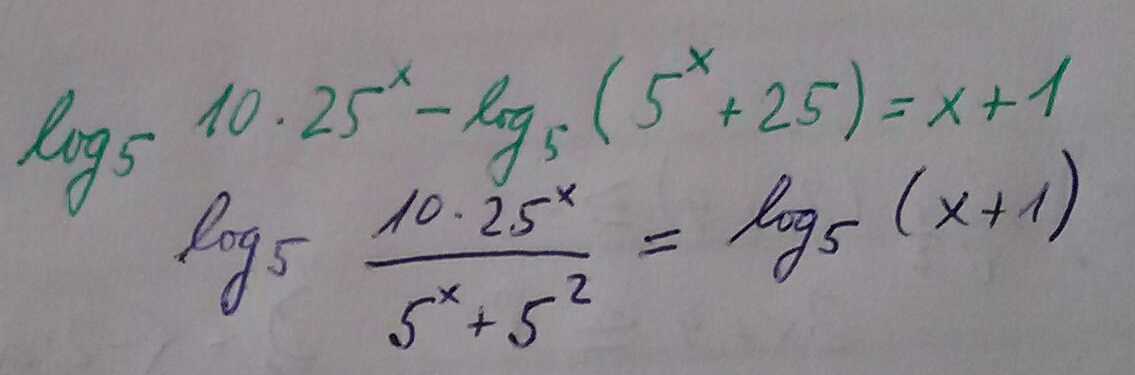 log₅ 10·25ˣ − log₅ (5ˣ + 25) = x + 1
log₅ (10·25ˣ)/(5ˣ + 5²) = log₅ (x + 1)